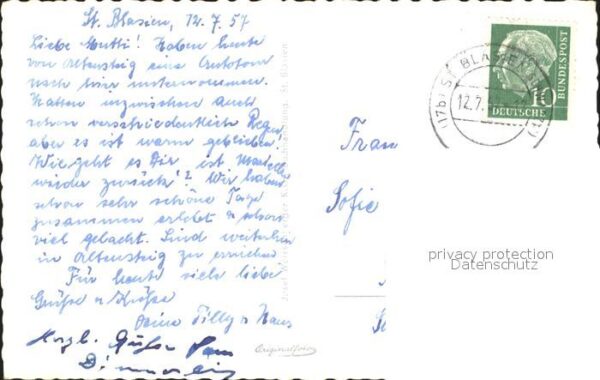 St. Blasien, 12.7.57
Liebe Mutti! Haben heute
von Altensteig eine Autotour
nach hier unternommen.
Hatten inzwischen auch
schon verschiedentlich Regen,
aber es ist warm geblieben.
Wie geht es Dir ist
wieder zurück? Wir haben
schon sehr schöne Tage
zusammen erlebt u. schon
viel gelacht. Sind weiterhin
in Altensteig zu erreichen
Für heute viele liebe
Grüße u Küße
Deine Tilly u Hans
Herzl. Grüße
Frau
Sofie
(17b) ST. BLASIEN
12.7.
10
DEUTSCHE
BUNDESPOST
privacy protection
Datenschutz
Originalfoto